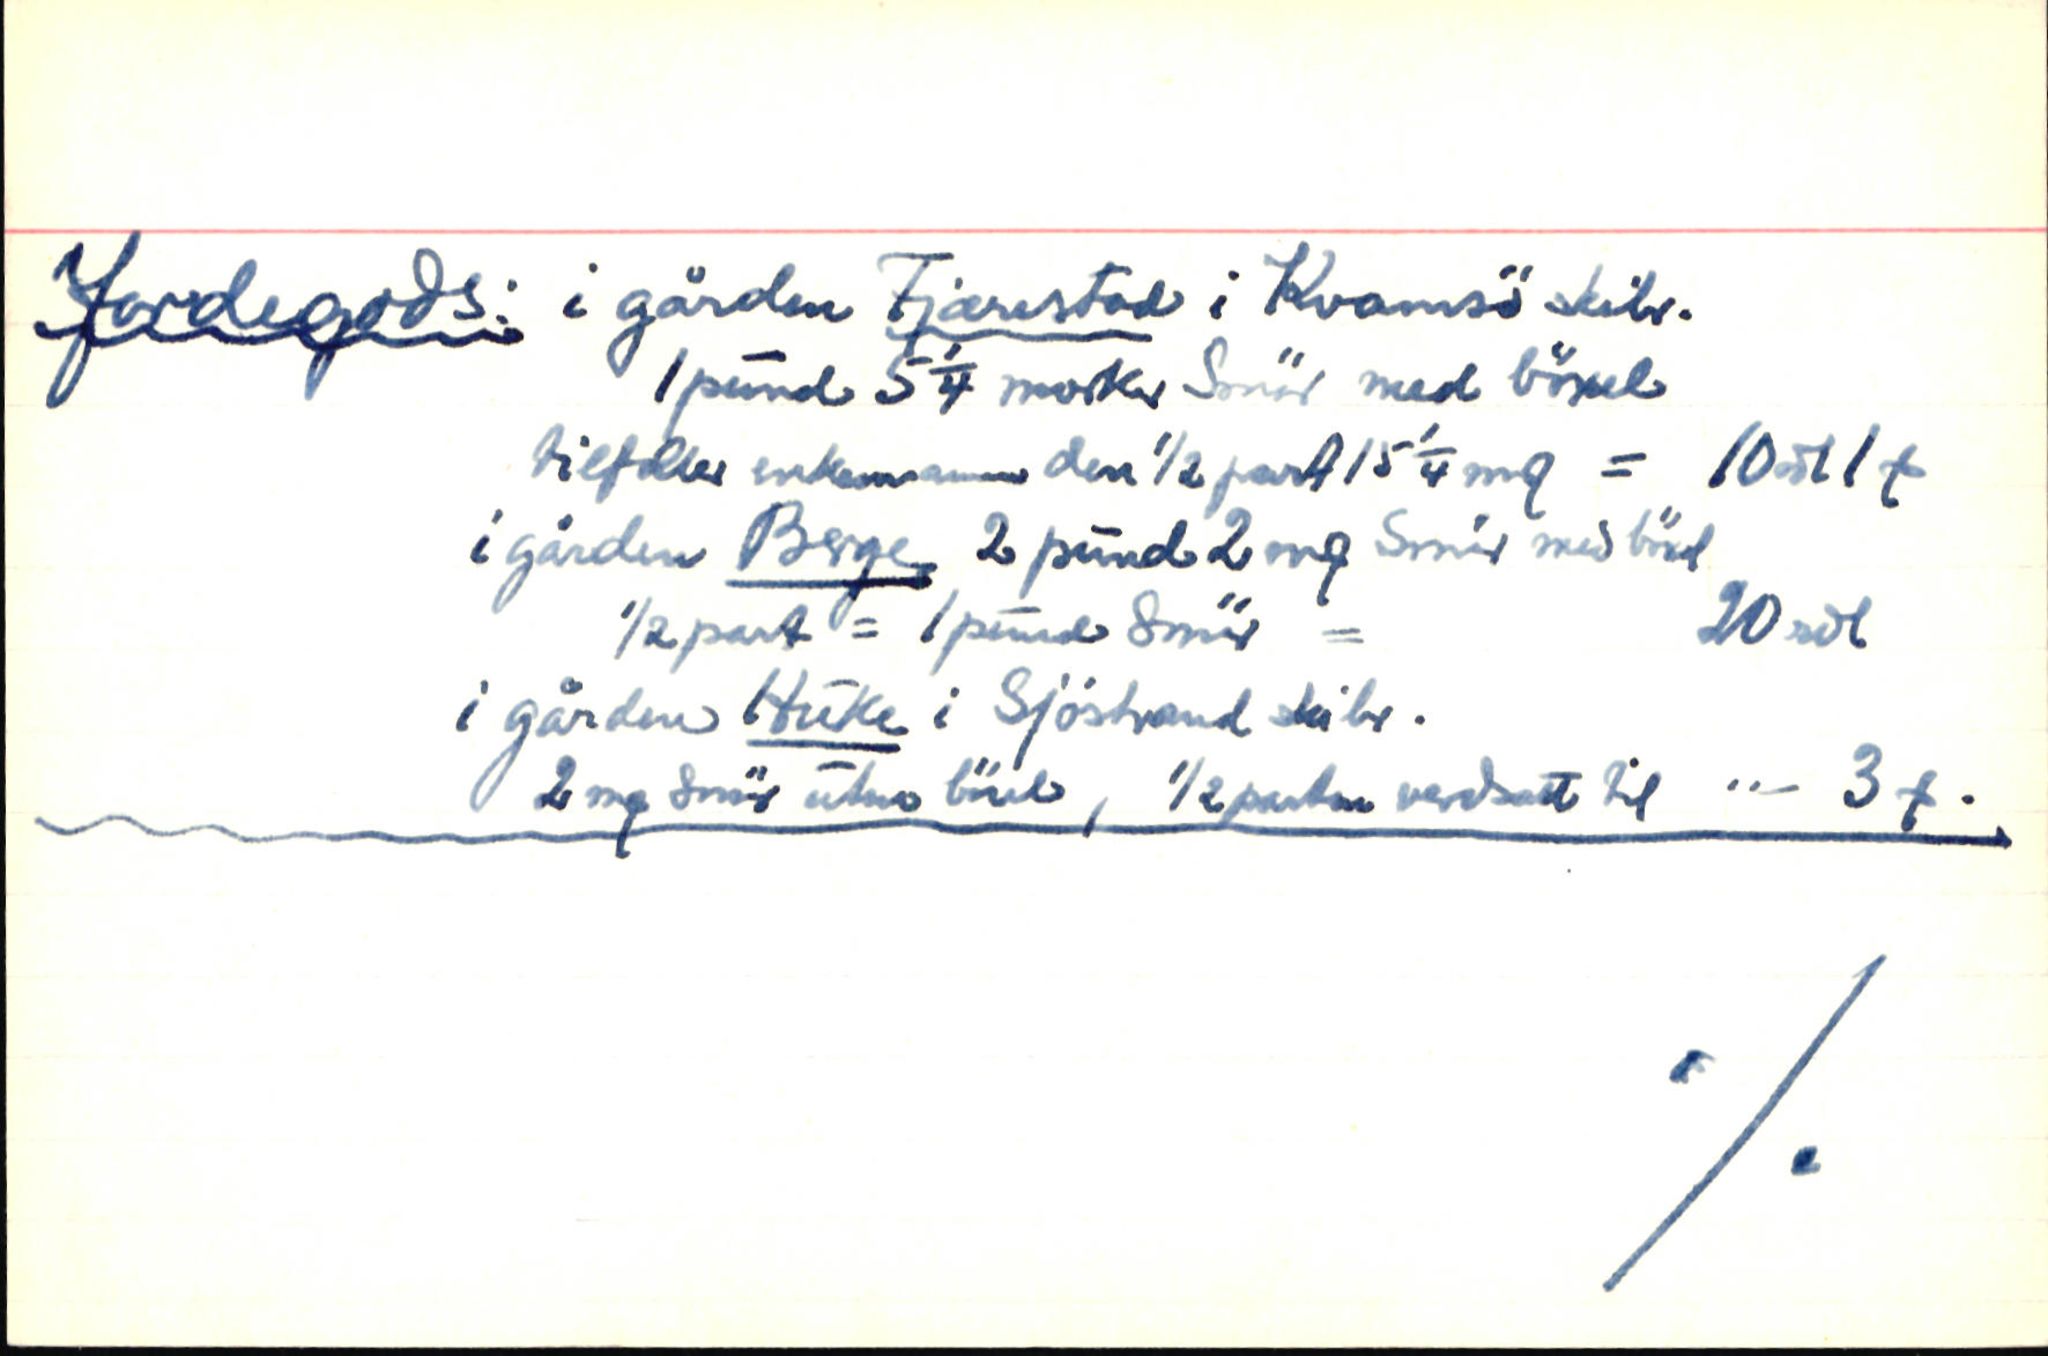 Jordegods: i gården Fjærestad i Kvamsö skibr.
1 pund 5 1/4 marker Smör med böxel
tilfaller enkemannen den 1/2 part 15 1/4 mq = 10 rdl 1 t
i gården Berge 2 pund 2 mq Smör med böxel
1/2 part = 1 pund Smör = 20 rdl
i gården Huke i Sjöstrand skibr.
2 mq Smör uten böxel, 1/2 parten verdsatt til " — 3 t.
./.